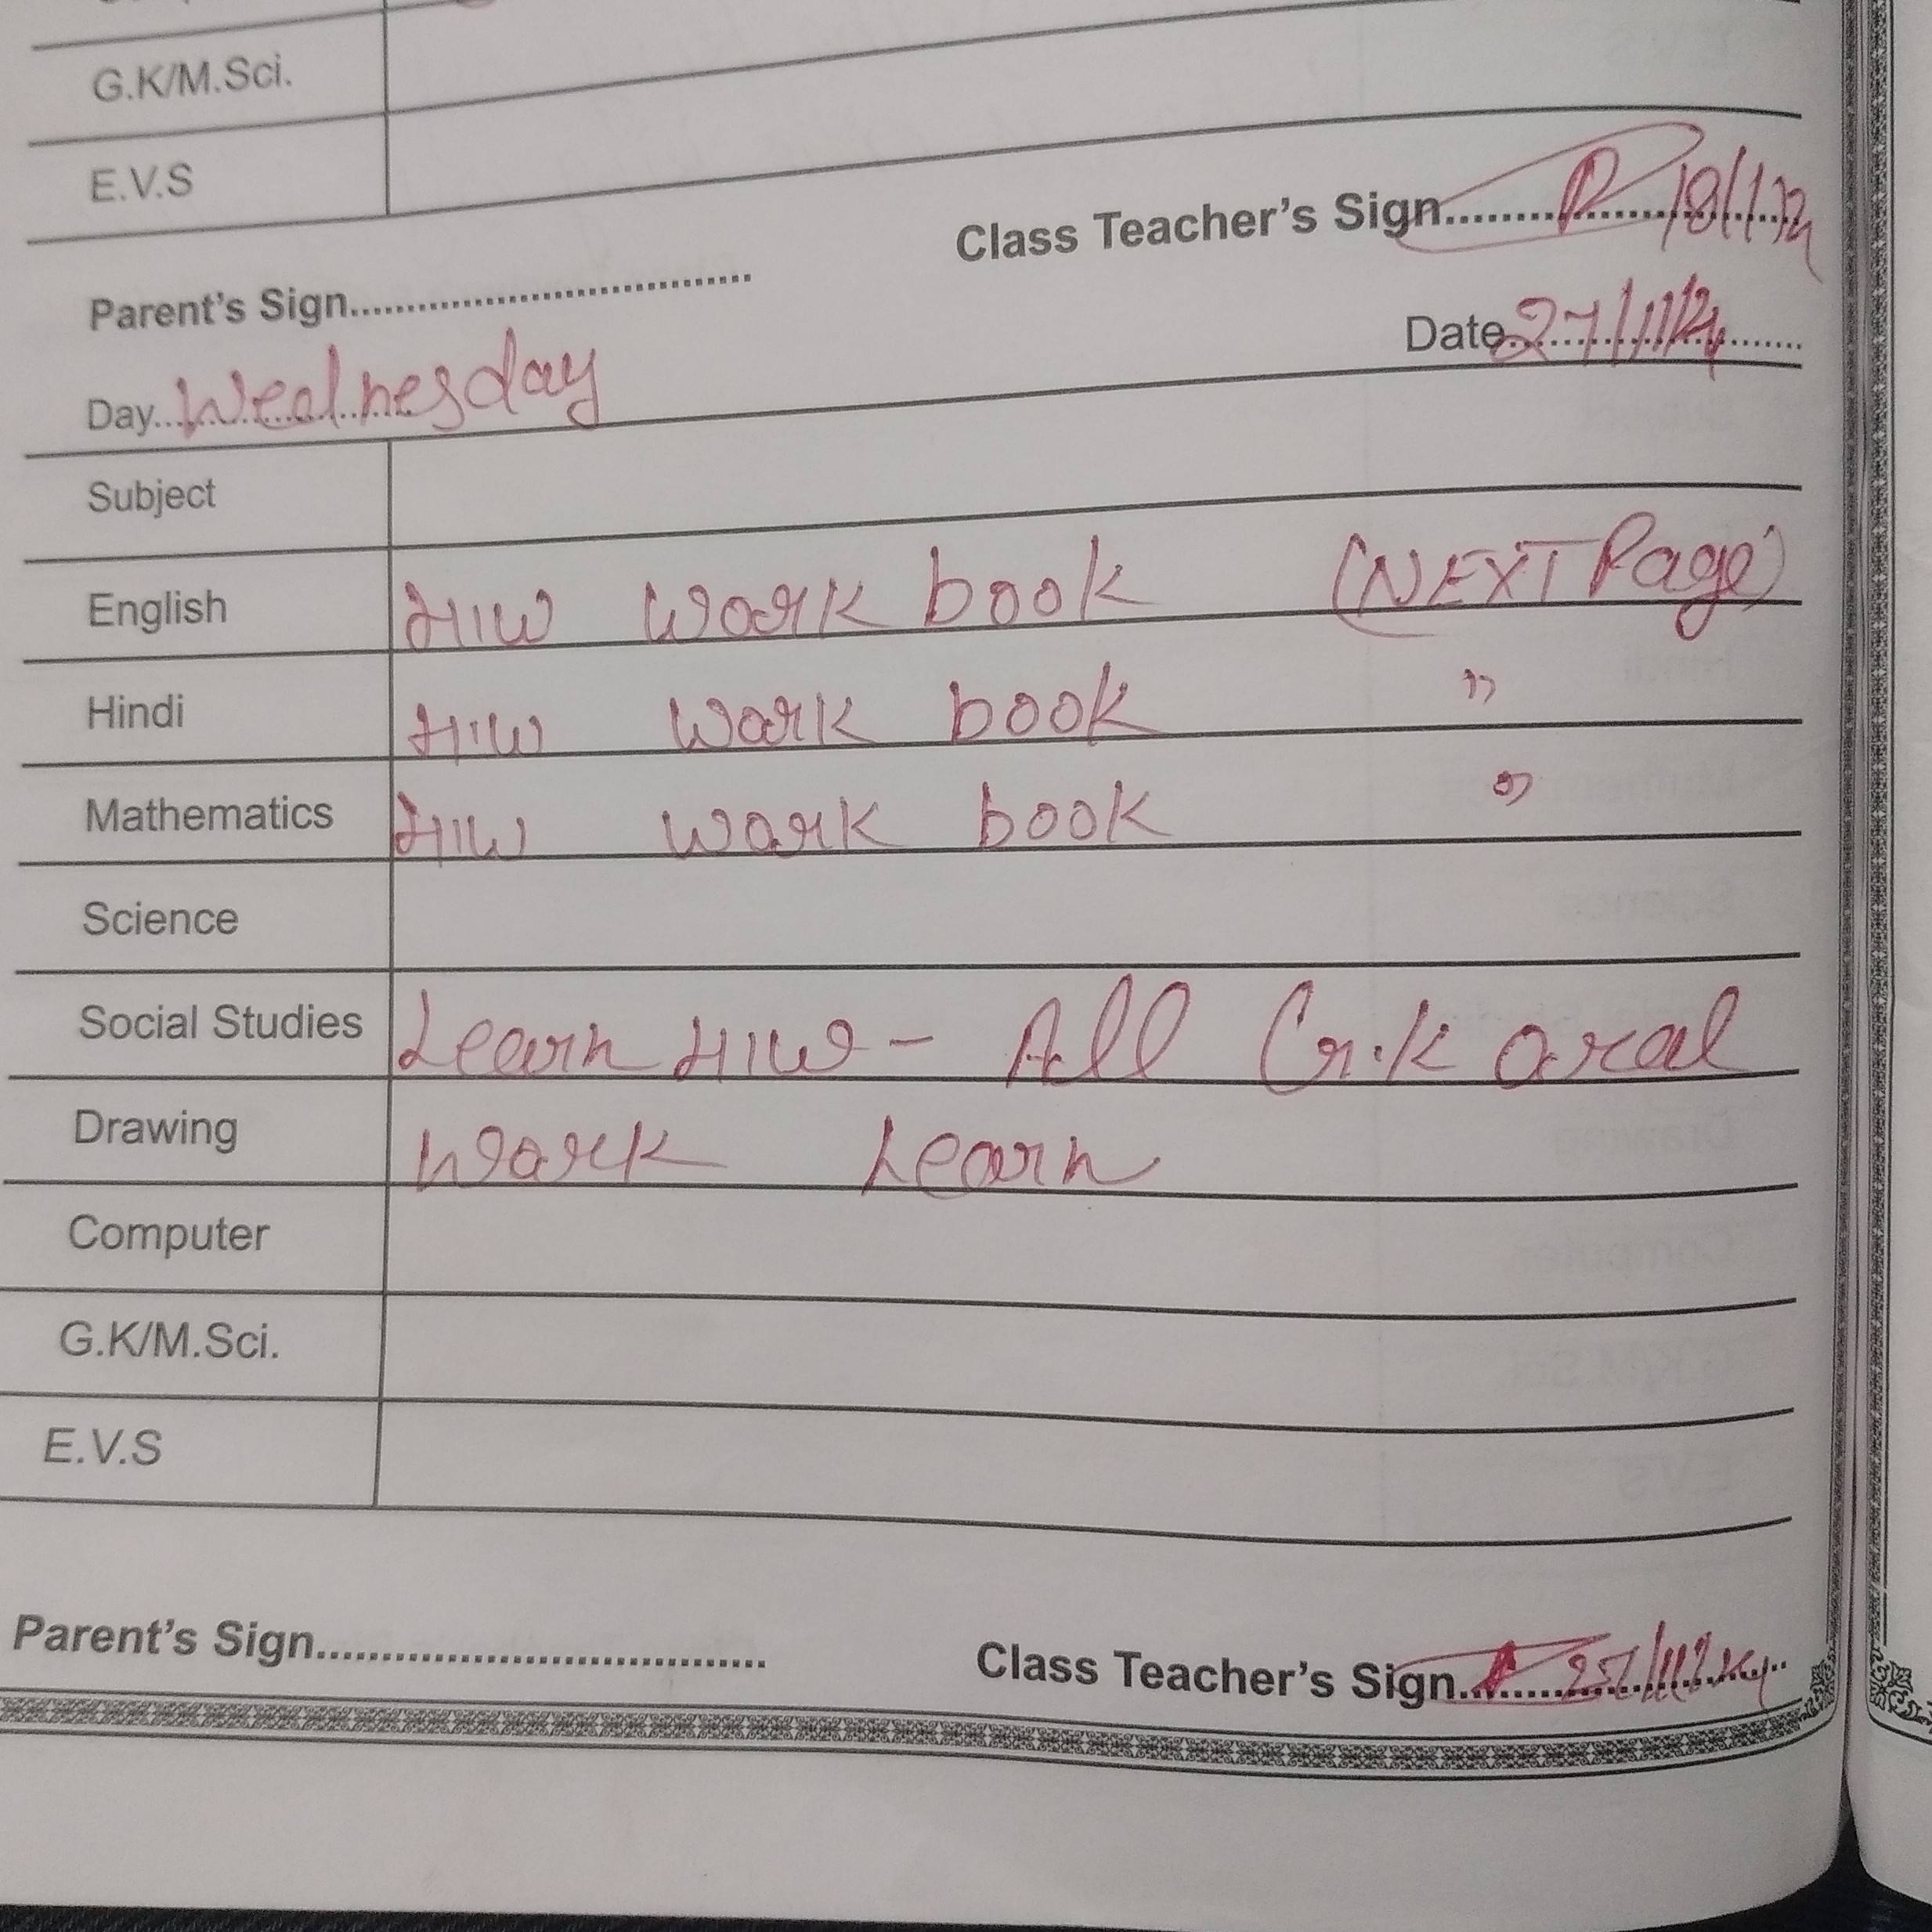 G.K/M.Sci.
E.V.S
Class Teacher's Sign
Parent's Sign
Date 27/11/24
Day Wednesday
Subject
English H/W work book (NEXT Page)
Hindi H/W work book "
Mathematics H/W work book "
Science
Social Studies Learn H/W - All G.K oral
Drawing work Learn
Computer
G.K/M.Sci.
E.V.S
Parent's Sign
Class Teacher's Sign